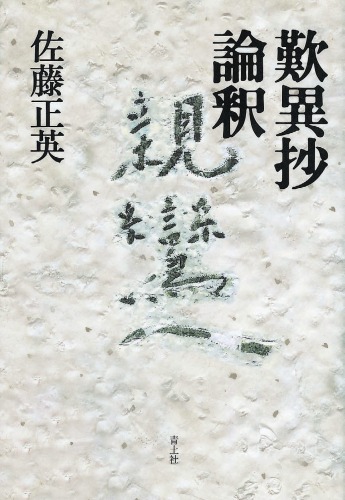 歎異抄
論釈
親鸞
佐藤正英
青土社